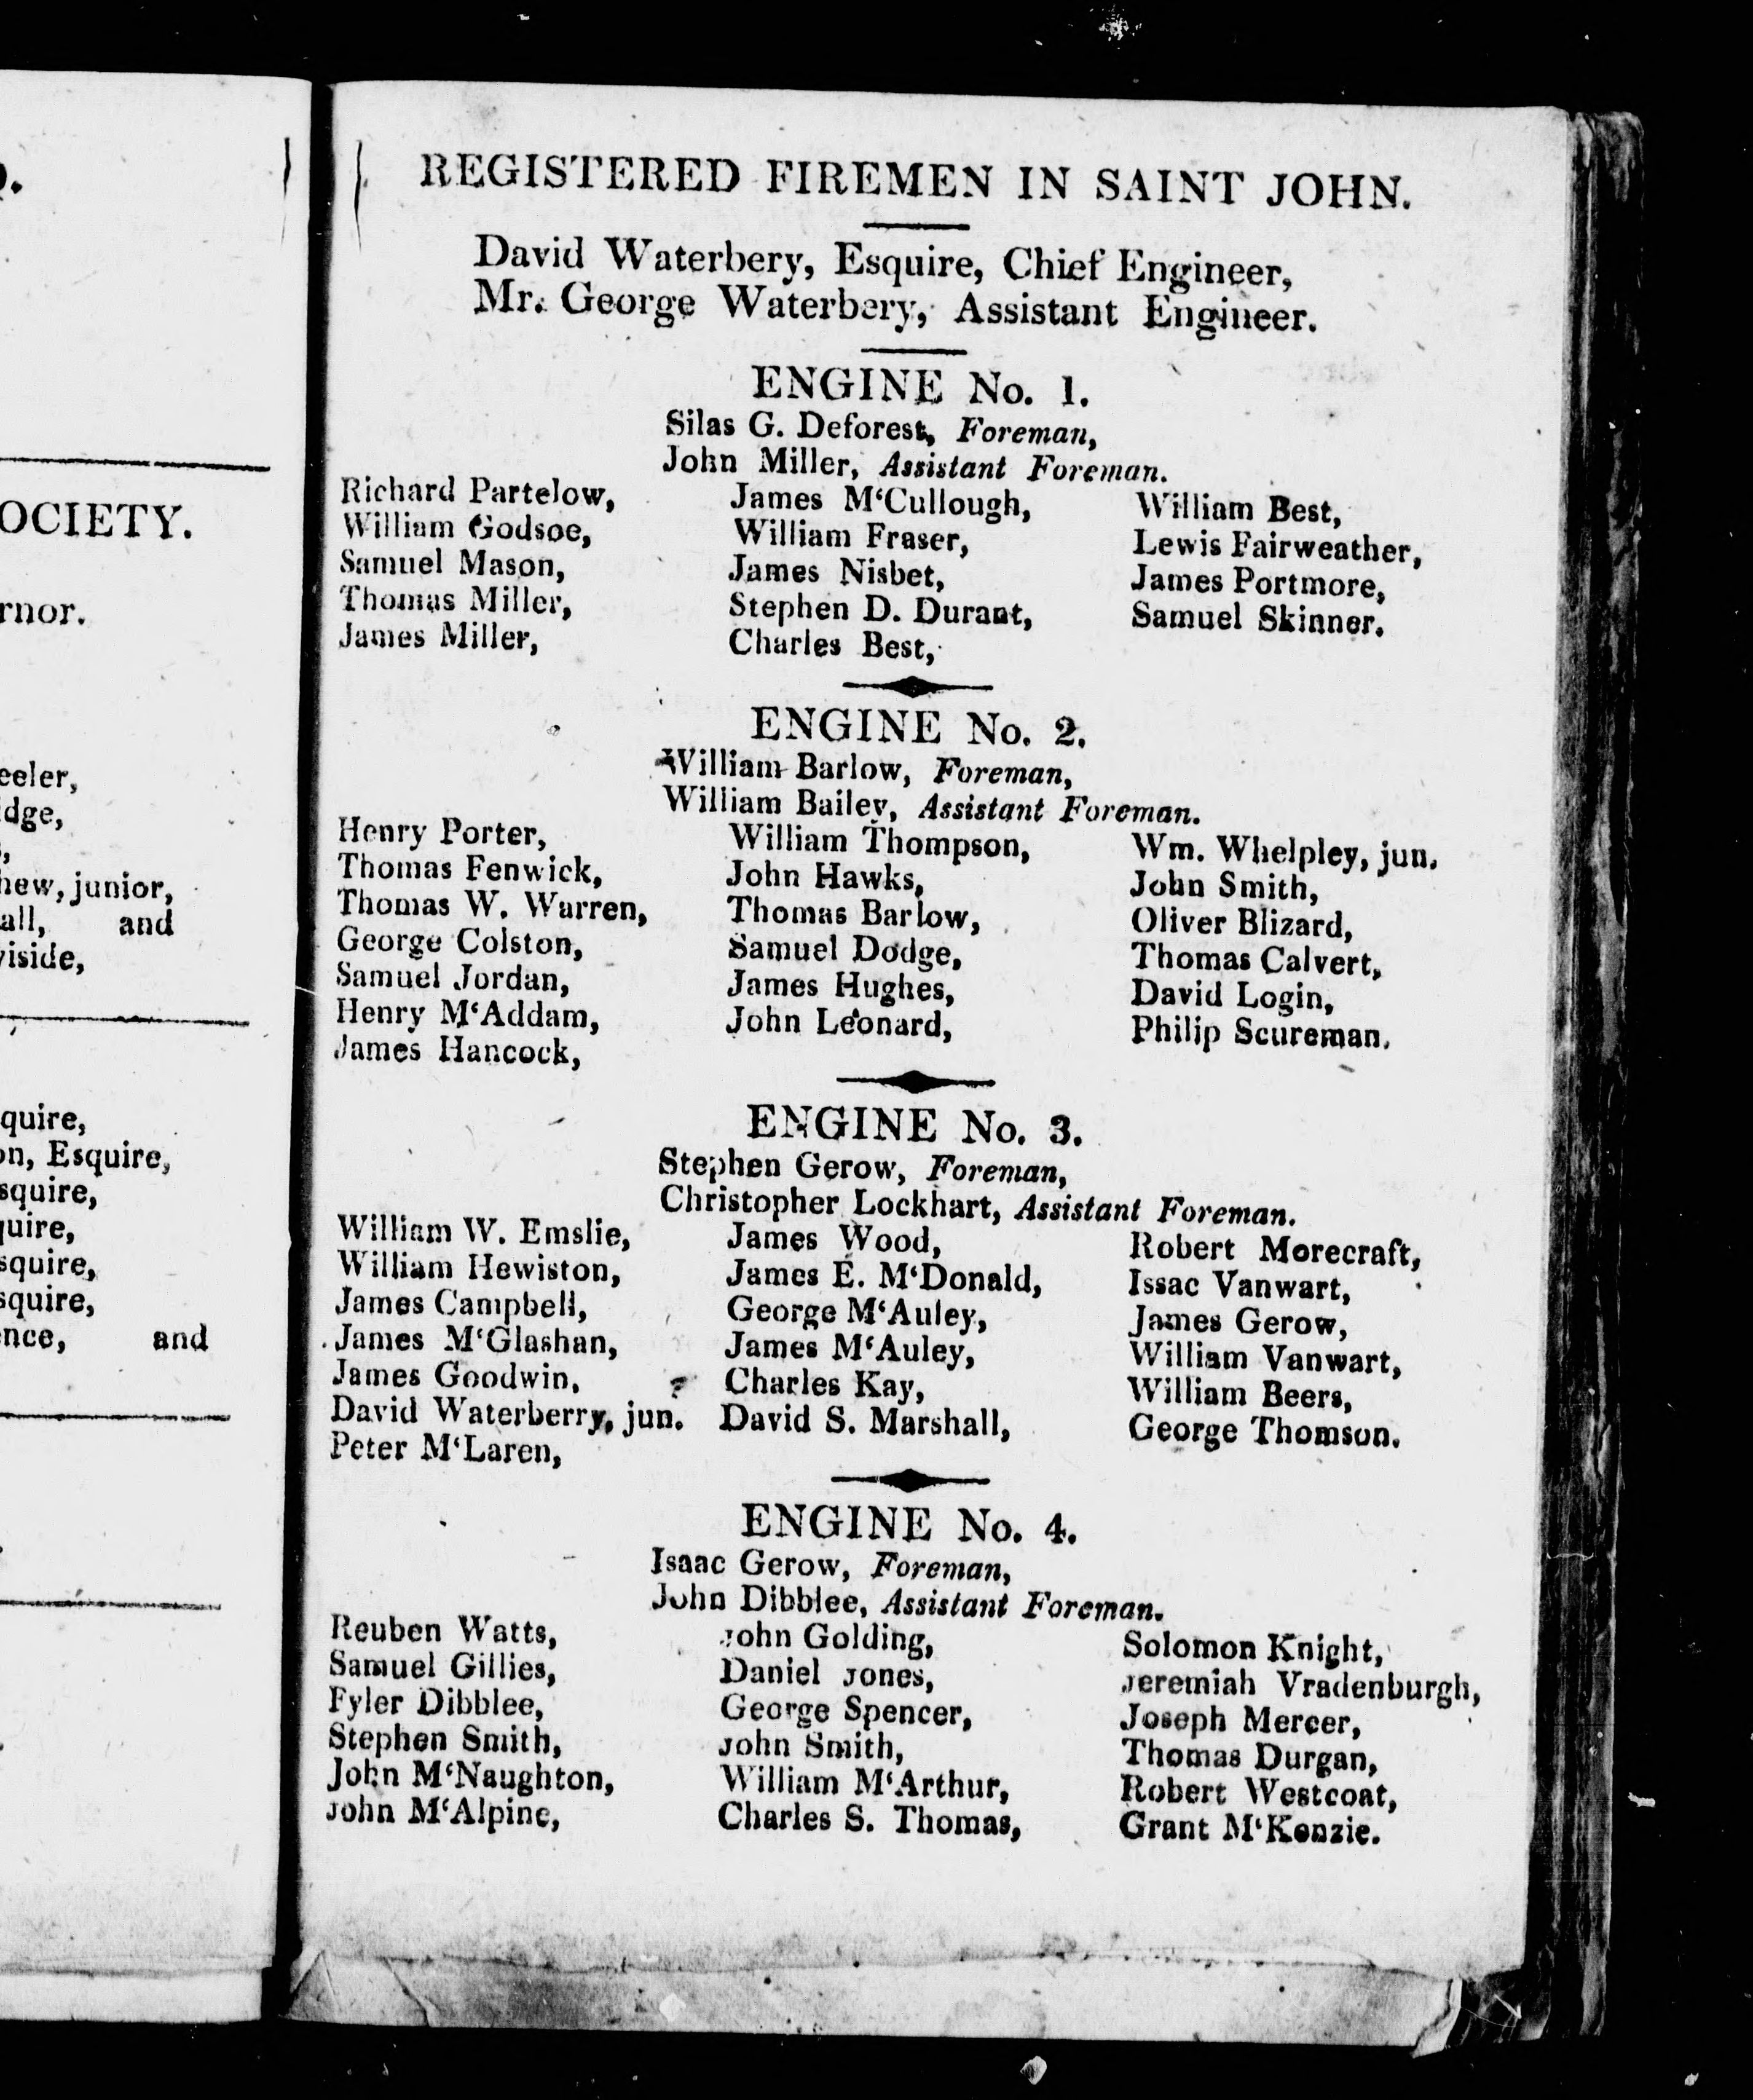 ).
OCIETY.
rnor.
eeler,
dge,
hew, junior,
all, and
iside,
quire,
on, Esquire,
squire,
quire,
squire,
squire,
nce, and
REGISTERED FIREMEN IN SAINT JOHN.
David Waterbery, Esquire, Chief Engineer,
Mr. George Waterbery, Assistant Engineer.
ENGINE No. 1.
Silas G. Deforest, Foreman,
John Miller, Assistant Foreman.
Richard Partelow, James M‘Cullough, William Best,
William Godsoe, William Fraser, Lewis Fairweather,
Samuel Mason, James Nisbet, James Portmore,
Thomas Miller, Stephen D. Durant, Samuel Skinner.
James Miller, Charles Best,
ENGINE No. 2.
William Barlow, Foreman,
William Bailey, Assistant Foreman.
Henry Porter, William Thompson, Wm. Whelpley, jun.
Thomas Fenwick, John Hawks, John Smith,
Thomas W. Warren, Thomas Barlow, Oliver Blizard,
George Colston, Samuel Dodge, Thomas Calvert,
Samuel Jordan, James Hughes, David Login,
Henry M‘Addam, John Leonard, Philip Scureman.
James Hancock,
ENGINE No. 3.
Stephen Gerow, Foreman,
Christopher Lockhart, Assistant Foreman.
William W. Emslie, James Wood, Robert Morecraft,
William Hewiston, James E. M‘Donald, Issac Vanwart,
James Campbell, George M‘Auley, James Gerow,
James M‘Glashan, James M‘Auley, William Vanwart,
James Goodwin, Charles Kay, William Beers,
David Waterberry, jun. David S. Marshall, George Thomson.
Peter M‘Laren,
ENGINE No. 4.
Isaac Gerow, Foreman,
John Dibblee, Assistant Foreman.
Reuben Watts, John Golding, Solomon Knight,
Samuel Gillies, Daniel Jones, Jeremiah Vradenburgh,
Fyler Dibblee, George Spencer, Joseph Mercer,
Stephen Smith, John Smith, Thomas Durgan,
John M‘Naughton, William M‘Arthur, Robert Westcoat,
John M‘Alpine, Charles S. Thomas, Grant M‘Kenzie.